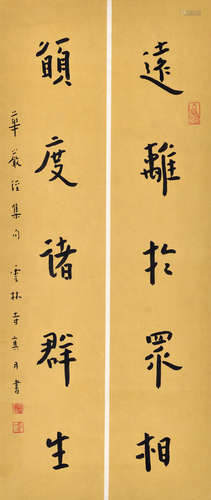 遠離於眾相
願度諸群生
華嚴經集句 雲林寺月書